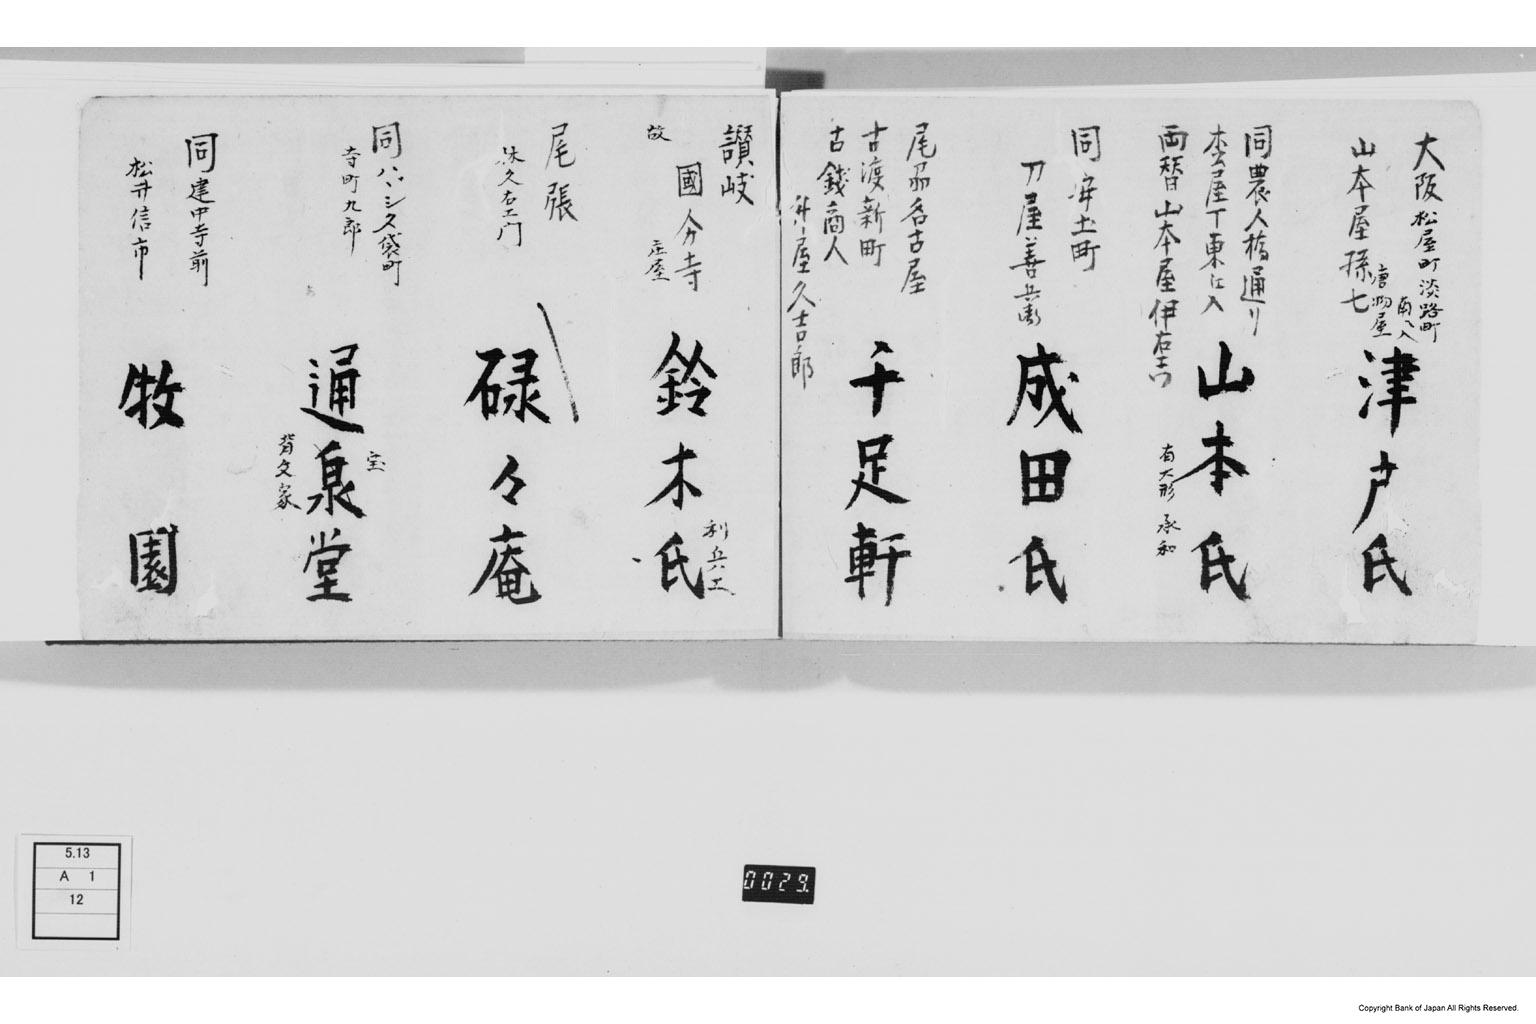 大阪松屋町淡路町
南へ入
唐物屋
山本屋孫七
津戸氏
同農人橋通り
松屋丁東江入
両替山本屋伊右吉
山本氏
有大形 承和
同安土町
刀屋善兵衛
成田氏
尾州名古屋
古渡新町
古銭商人
升屋久吉郎
千足軒
讃岐
故
國分寺
庄屋
鈴木氏
利兵エ
尾張
久右エ门
碌々庵
同ハシ久袋町
寺町九郎
通泉堂
宝
背文家
同建中寺前
松井信市
牧園
5.13
A 1
12
0029.
Copyright Bank of Japan All Rights Reserved.